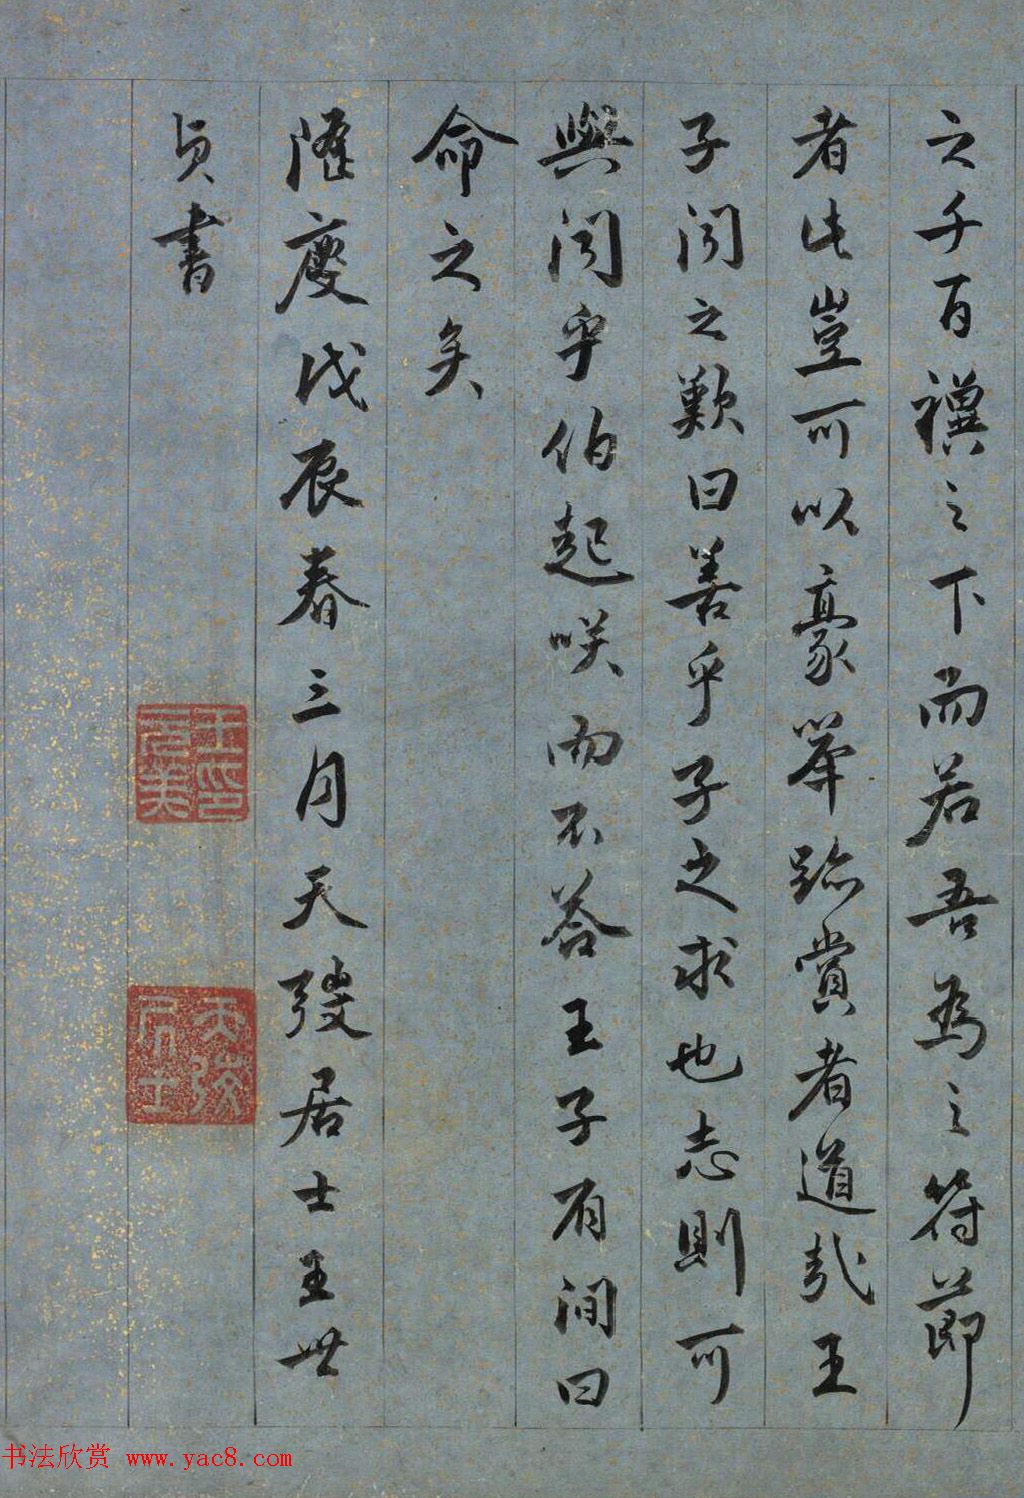 之千百禩之下而若吾為之符節
者此豈可以豪舉跡賞者道哉王
子聞之歎曰善乎子之求也志則可
與聞乎伯起咲而不答王子有間曰
命之矣
隆慶戊辰春三月天弢居士王世
貞書
王元美印
天弢居士
书法欣赏 www.yac8.com